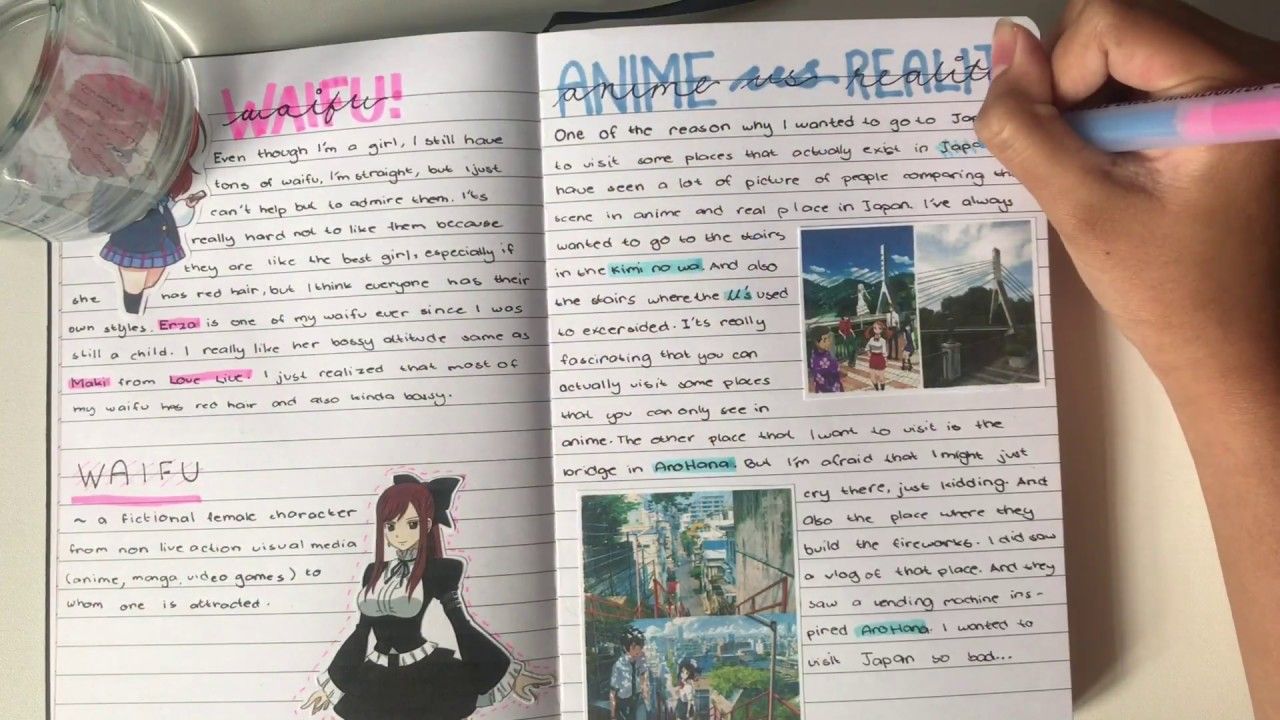 WAIFU!
waifu
Even though I'm a girl, I still have
tons of waifu, I'm straight, but i just
can't help but to admire them. I'ts
really hard not to like them because
they are like the best girl, especially if
she has red hair, but I think everyone has their
own styles. Erza is one of my waifu ever since I was
still a child. I really like her bossy attitude same as
Maki from Love Live. I just realized that most of
my waifu has red hair and also kinda bossy.
WAIFU
~ a fictional female character
from non live action visual media
(anime, manga, video games) to
whom one is attracted.
ANIME vs REALIT
anime vs realit
One of the reason why I wanted to go to Jap
to visit some places that actually exist in Japa
have seen a lot of picture of people comparing th
scene in anime and real place in Japan. I've always
wanted to go to the stairs
in the Kimi no wa. And also
the stairs where the U's used
to excersided. I'ts really
fascinating that you can
actually visit some places
that you can only see in
anime. The other place that I want to visit is the
bridge in AnoHana. But I'm afraid that I might just
cry there, just kidding. And
Also the place where they
build the fireworks. I did saw
a vlog of that place. And they
saw a vending machine ins-
pired AnoHana. I wanted to
visit Japan so bad...